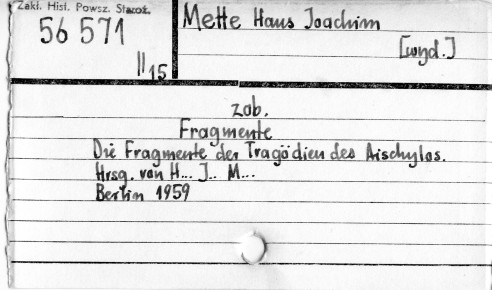 Zakł. Hist. Powsz. Staroż.
56 571
II 15
Mette Hans Joachim
[wyd.]
zob.
Fragmente
Die Fragmente der Tragödien des Aischylos.
Hrsg. von H... J.. M...
Berlin 1959